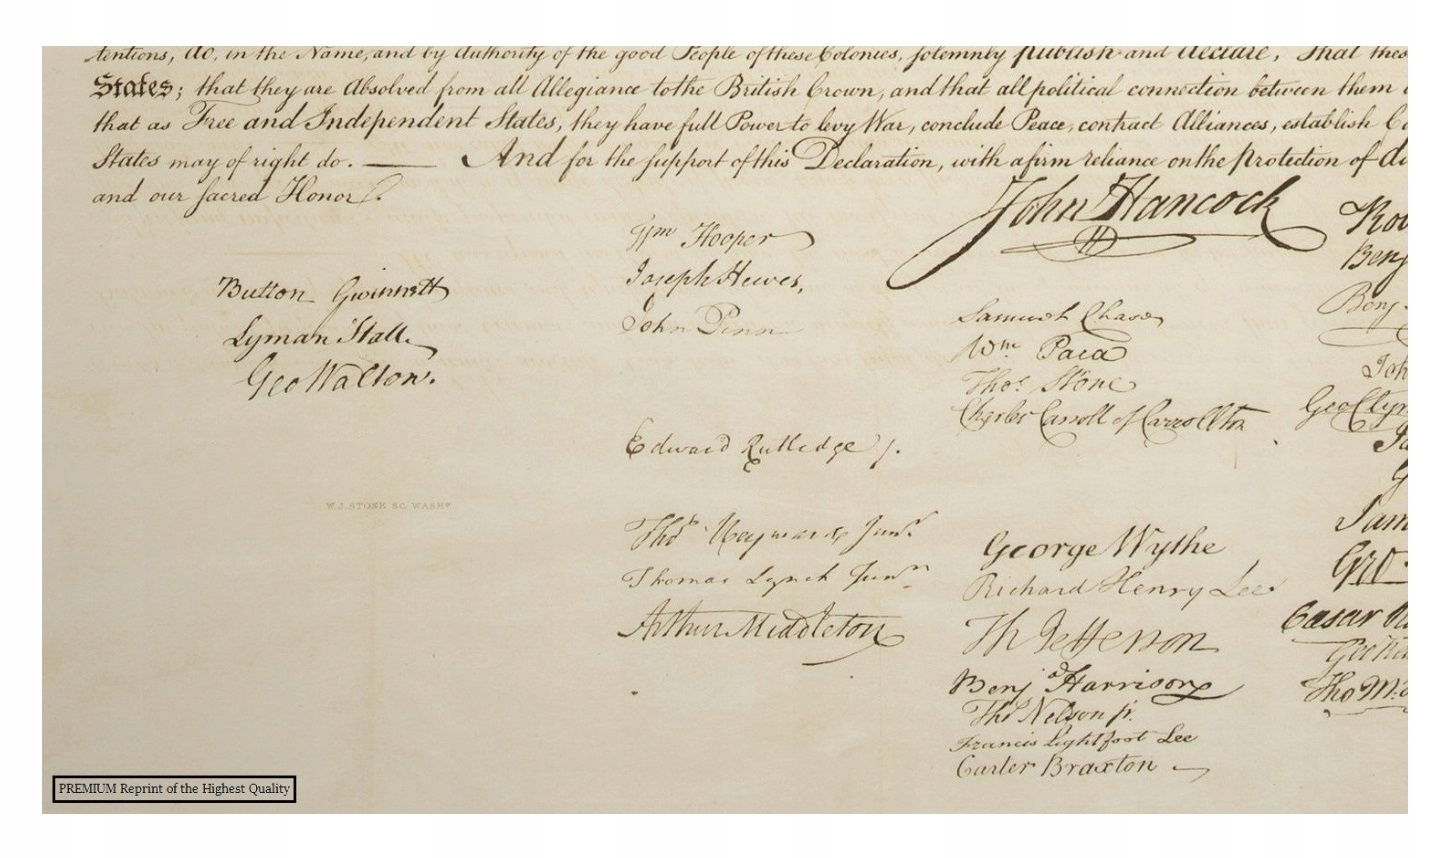 tentions, do, in the Name, and by Authority of the good People of these Colonies, solemnly publish and declare, That thes
States; that they are Absolved from all Allegiance to the British Crown, and that all political connection between them
that as Free and Independent States, they have full Power to levy War, conclude Peace, contract Alliances, establish Co
States may of right do. — And for the support of this Declaration, with a firm reliance on the Protection of di
and our sacred Honor.
Button Gwinnett
Lyman Hall.
Geo Walton.
Wm Hooper
Joseph Hewes,
John Penn
Edward Rutledge /.
Thos Heyward Junr.
Thomas Lynch Junr.
Arthur Middleton
W.J. STONE SC. WASHN.
John Hancock
Samuel Chase
Wm. Paca
Thos. Stone
Charles Carroll of Carrollton
George Wythe
Richard Henry Lee
Th Jefferson
Benja Harrison
Thos Nelson jr.
Francis Lightfoot Lee
Carter Braxton
Rob
Benj
Benj
Joh
Geo Clym
Ja
G
Jam
Geo.
Caesar Ro
Geo Re
Tho M:
PREMIUM Reprint of the Highest Quality